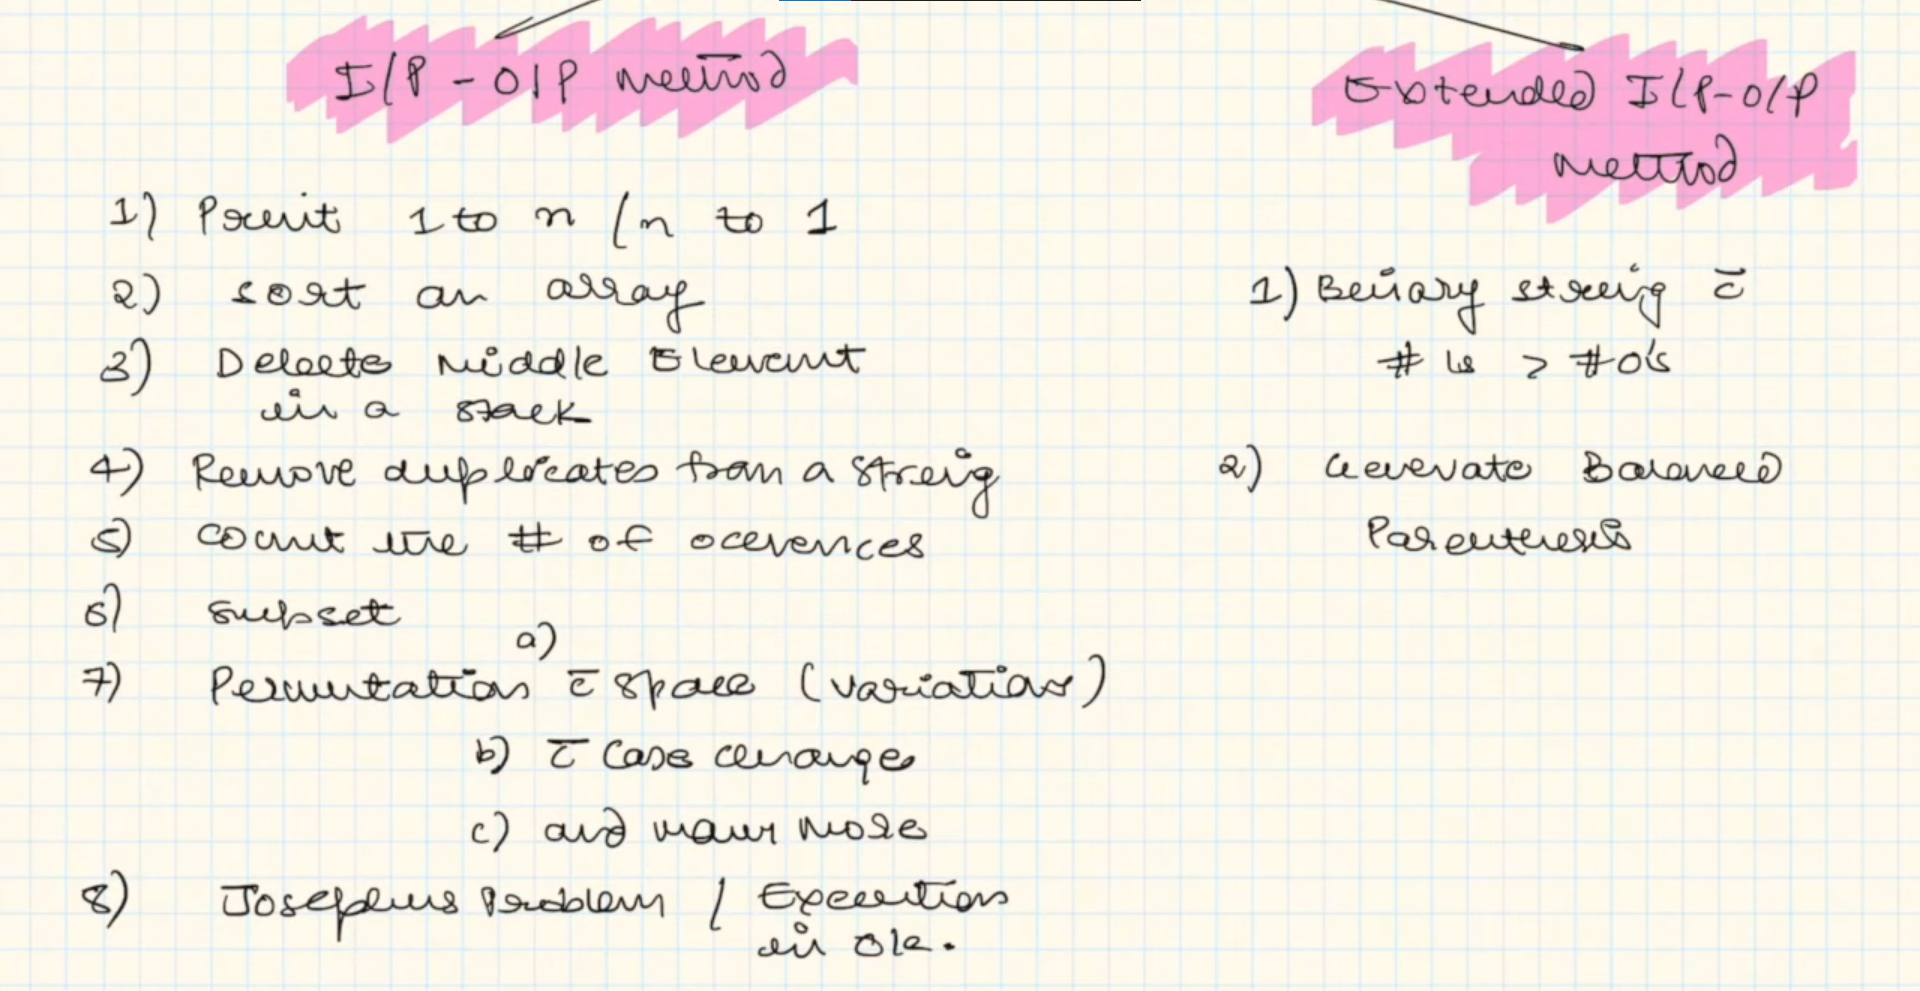 I/P - O/P Method
1) Print 1 to n / n to 1
2) sort an array
3) Delete Middle Element
in a stack
4) Remove duplicates from a string
5) count the # of occerences
6) subset
7) Permutation a) c̄ space (variation)
b) c̄ case change
c) and many more
8) Josephus Problem / Execution
in
Extended I/P-O/P
Method
1) Binary string c̄
# 1s > #0's
2) Generate Balanced
Parenthesis